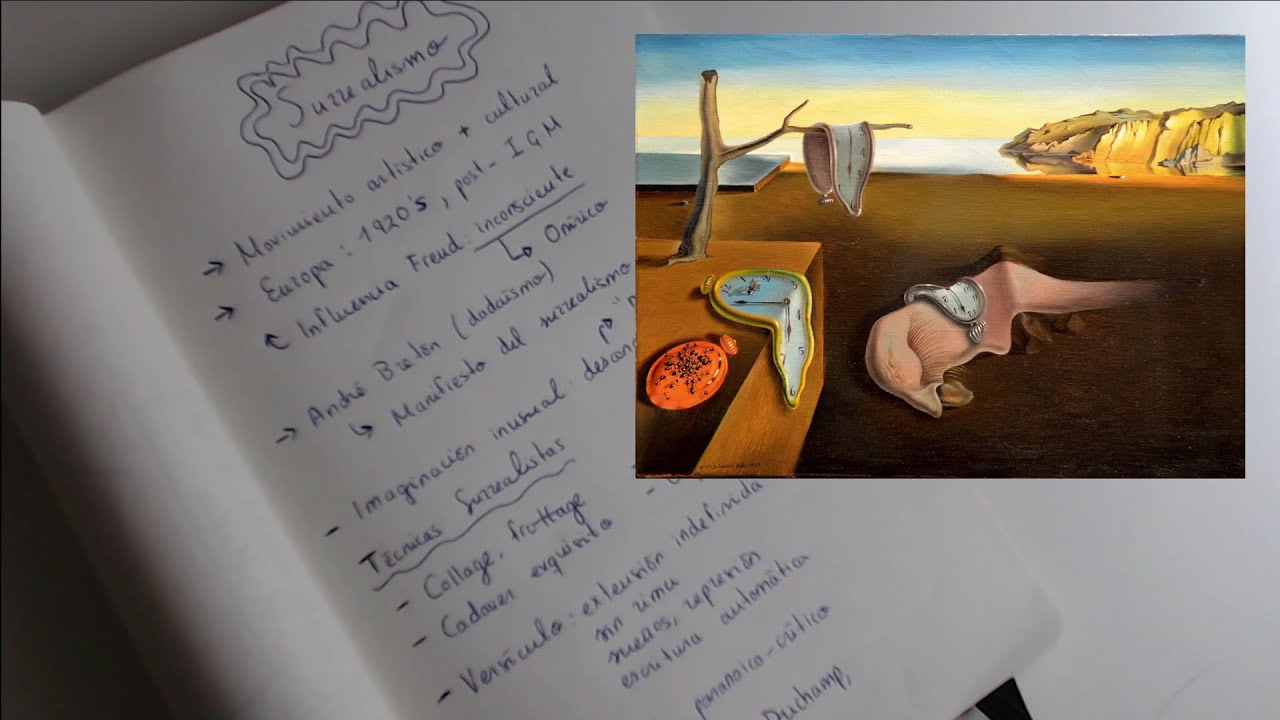 Surrealismo
→ Movimiento artístico + cultural
→ Europa: 1920's, post-IGM
Influencia Freud: inconsciente
↳ Onírico
→ André Bretón (dadaísmo)
↳ Manifiesto del surrealismo
- Imaginación inusual:
Técnicas Surrealistas
- Collage, frottage
- Cadaver exquisito
- Versículo: extensión indefinida
sin rima
sueños, represión
escritura automática
paranoico-crítico
Duchamp,